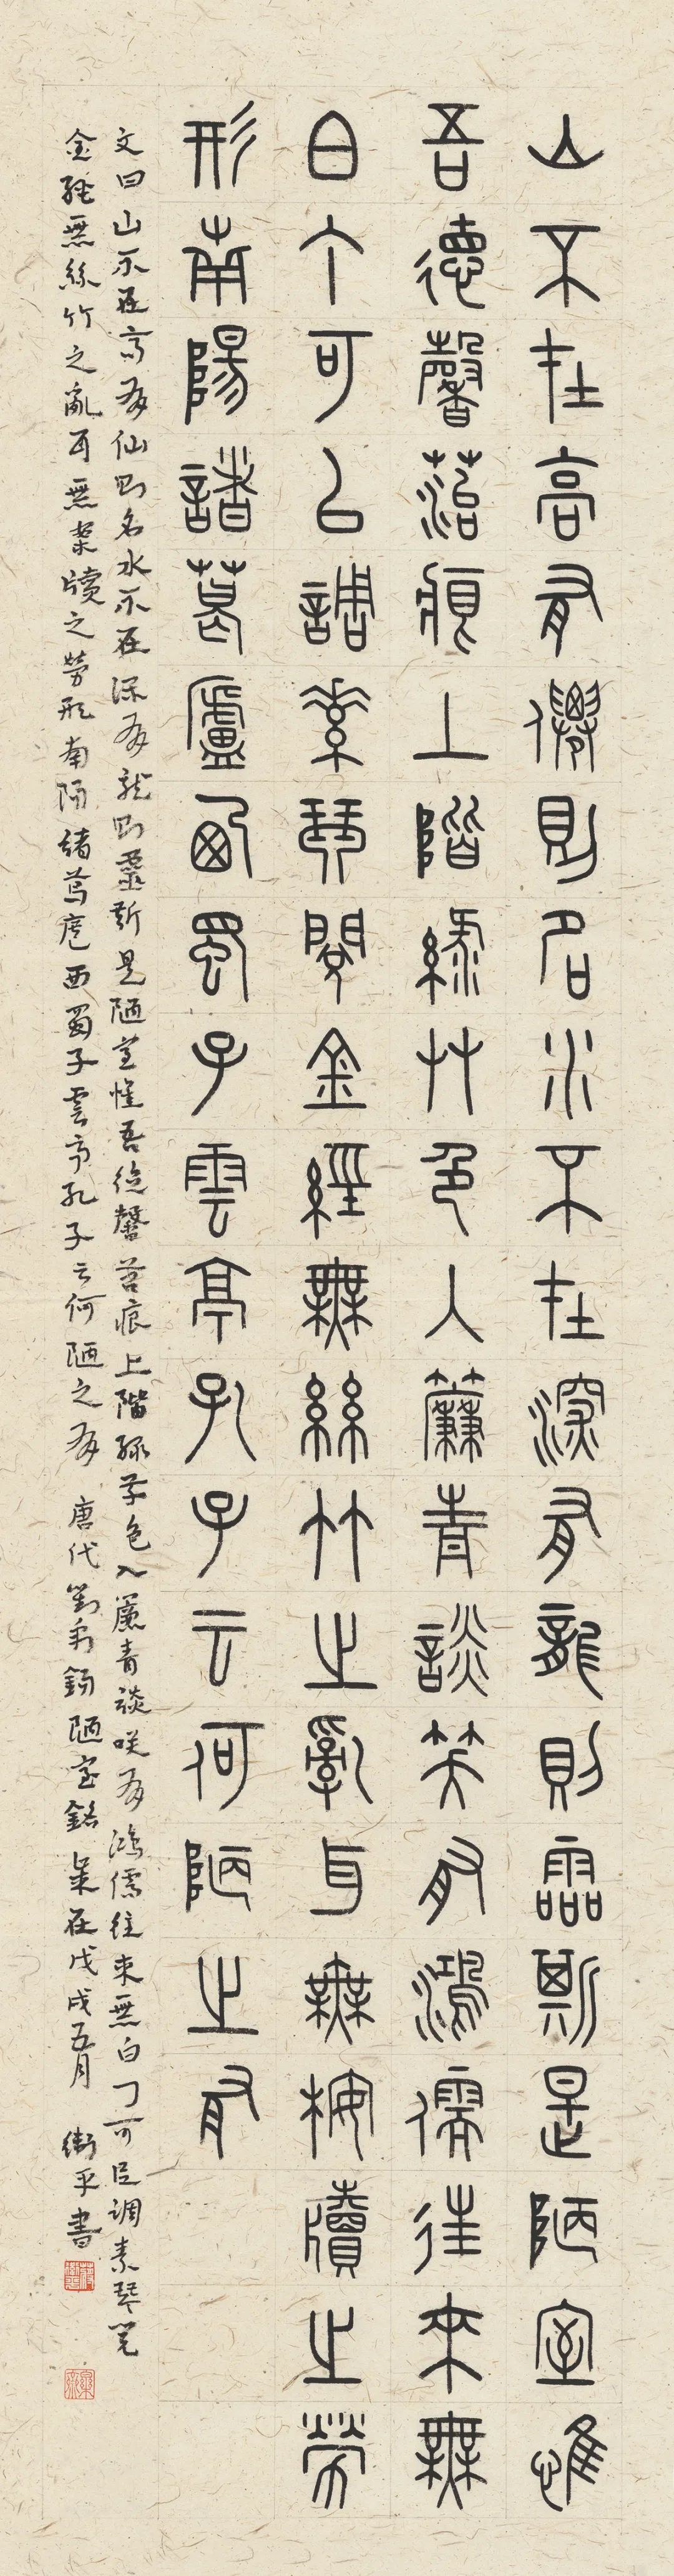 山不在高有僊則名水不在深有龍則靈斯是陋室惟
吾德馨苔痕上階綠艸色入簾青談笑有鴻儒往來無
白丁可㠯調素琴閱金經無絲竹之亂耳無案牘之勞
形南陽諸葛廬西蜀子雲亭孔子云何陋之有
文曰山不在高有仙則名水不在深有龍則靈斯是陋室惟吾德馨苔痕上階綠草色入簾青談咲有鴻儒往來無白丁可㠯調素琴覽
金經無絲竹之亂耳無案牘之勞形南陽諸葛廬西蜀子雲亭孔子云何陋之有 唐代劉禹錫陋室銘 歲在戊戌五月 衛平書